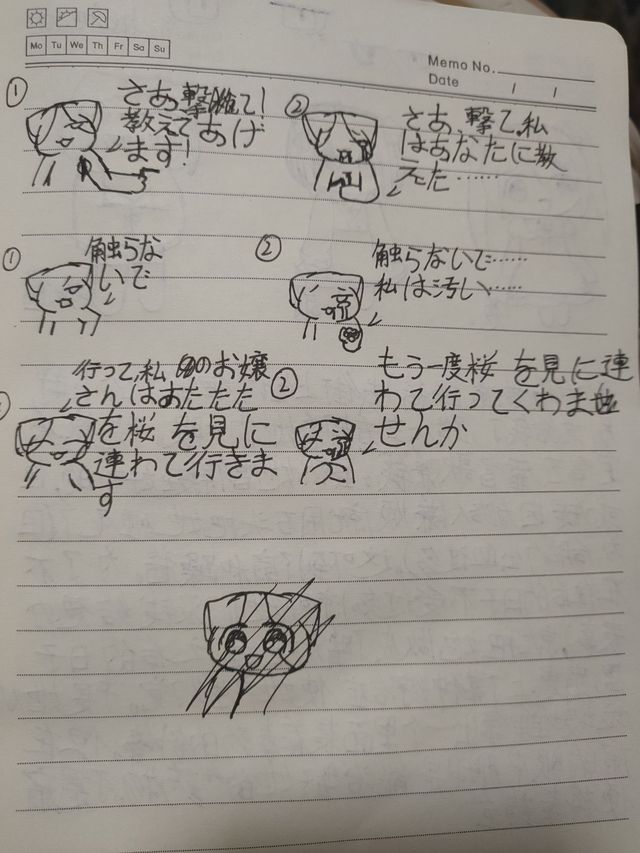 Mo Tu We Th Fr Sa Su
Memo No.
Date / /
①
さあ、撃て!
教えてあげ
ます!
②
さあ、撃て、私
はあなたに教
えた……
①
触らな
いで
②
触らないで……
私は汚い……
行って、私のお嬢
さんはあたたた
を桜を見に
連わて行きま
す
②
もう一度桜を見に連
わて行ってくわま
せんか